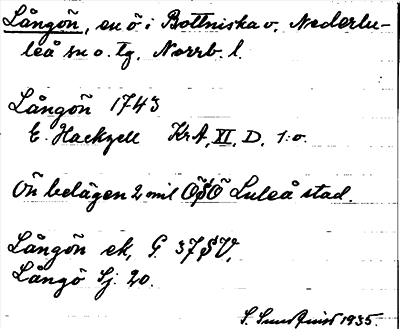 Långön, en ö i Bottniska v. Nederlu-
leå sn o. tg. Norrb. l.
Långön 1743
E. Hackzell KrA, XI, D, 1:o.
Ön belägen 2 mil OSO Luleå stad.
Långön ek, G. 37SV.
Långö Sj. 20.
S. Sundqvist 1935